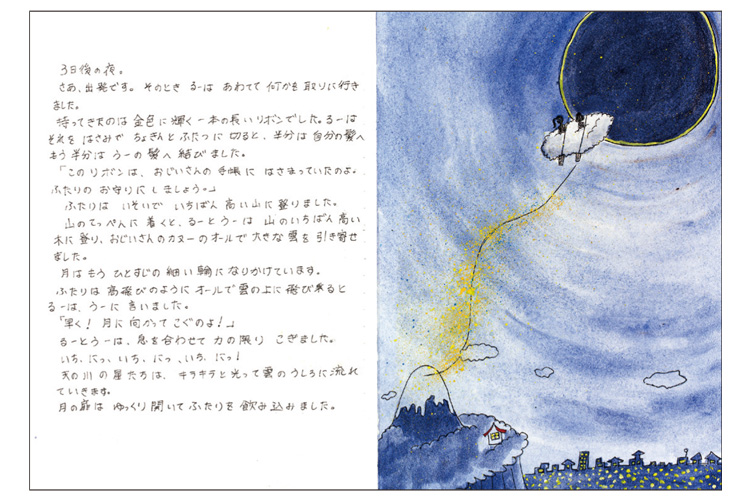 3日後の夜。
さあ、出発です。そのとき るーは あわてて 何かを 取りに行き
ました。
持ってきたのは 金色に 輝く 一本の長いリボンでした。るーは
それを はさみで ちょきんと ふたつに 切ると、半分は 自分の髪へ
もう 半分は うーの 髪へ 結びました。
「このリボンは、おじいさんの 手帳に はさまっていたのよ。
ふたりの お守りに しましょう。」
ふたりは いそいで いちばん 高い山に 登りました。
山のてっぺんに 着くと、るーとうーは 山のいちばん 高い
木に 登り、おじいさんのカヌーのオールで 大きな 雲を 引き寄せ
ました。
月はもう ひとすじの 細い 輪に なりかけています。
ふたりは 高飛びのように オールで 雲の上に 飛び乗ると
るーは、うーに 言いました。
「早く! 月に 向かって こぐのよ!」
るーとうーは、息を合わせて 力の限り こぎました。
いち、にっ、いち、にっ、いち、にっ!
天の川の 星たちは、キラキラと光って 雲のうしろに 流れ
ていきます。
月の扉は ゆっくり 開いて ふたりを 飲み込みました。